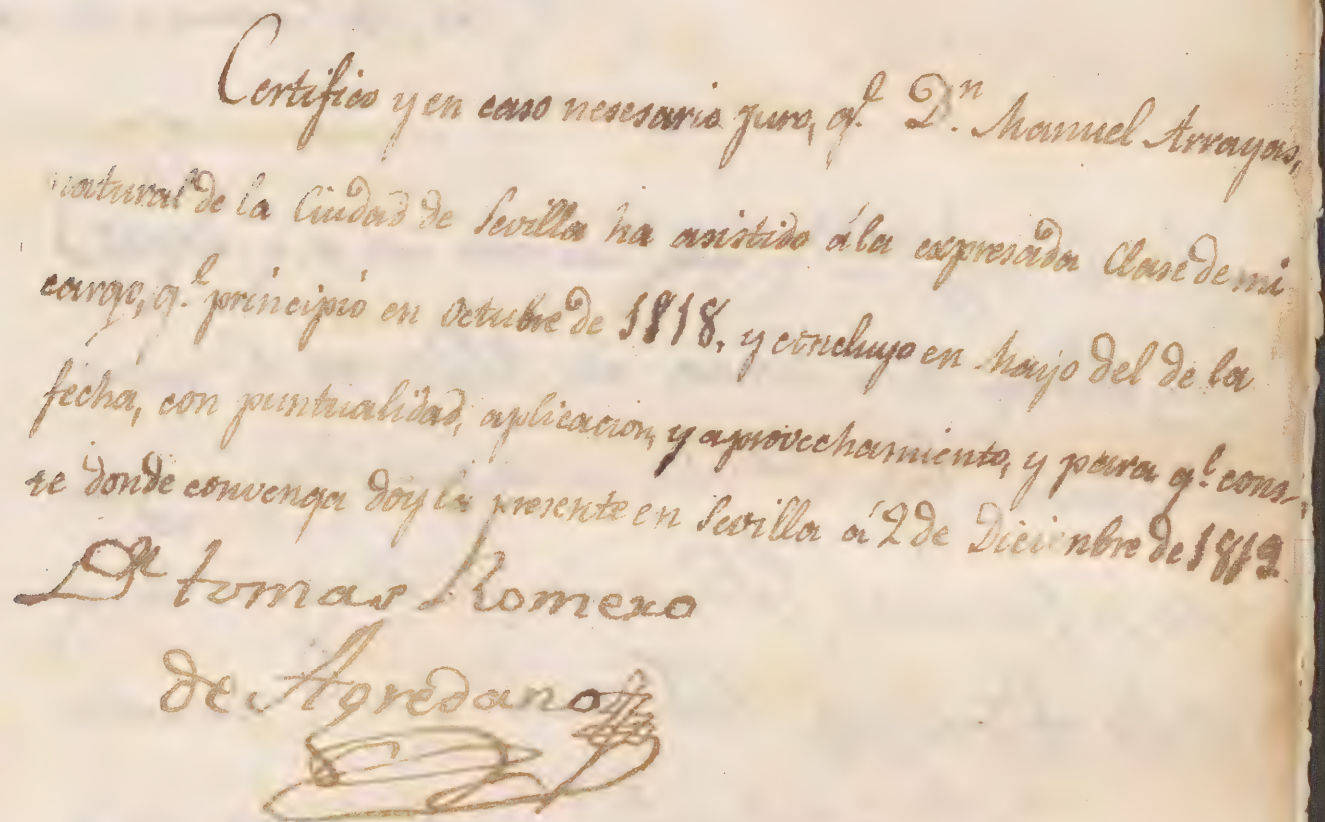 Certifico y en caso nesesario juro, q.e D.n Manuel Arrayas,
natural de la Ciudad de Sevilla ha asistido á la expresada Clase de mi
cargo, q.e principió en Octubre de 1818, y concluyo en Mayo del de la
fecha, con puntualidad, aplicacion, y aprovechamiento, y para q.e cons-
te donde convenga doy la presente en Sevilla á 2 de Diciembre de 1819
D.r tomas Romero
de Agredano